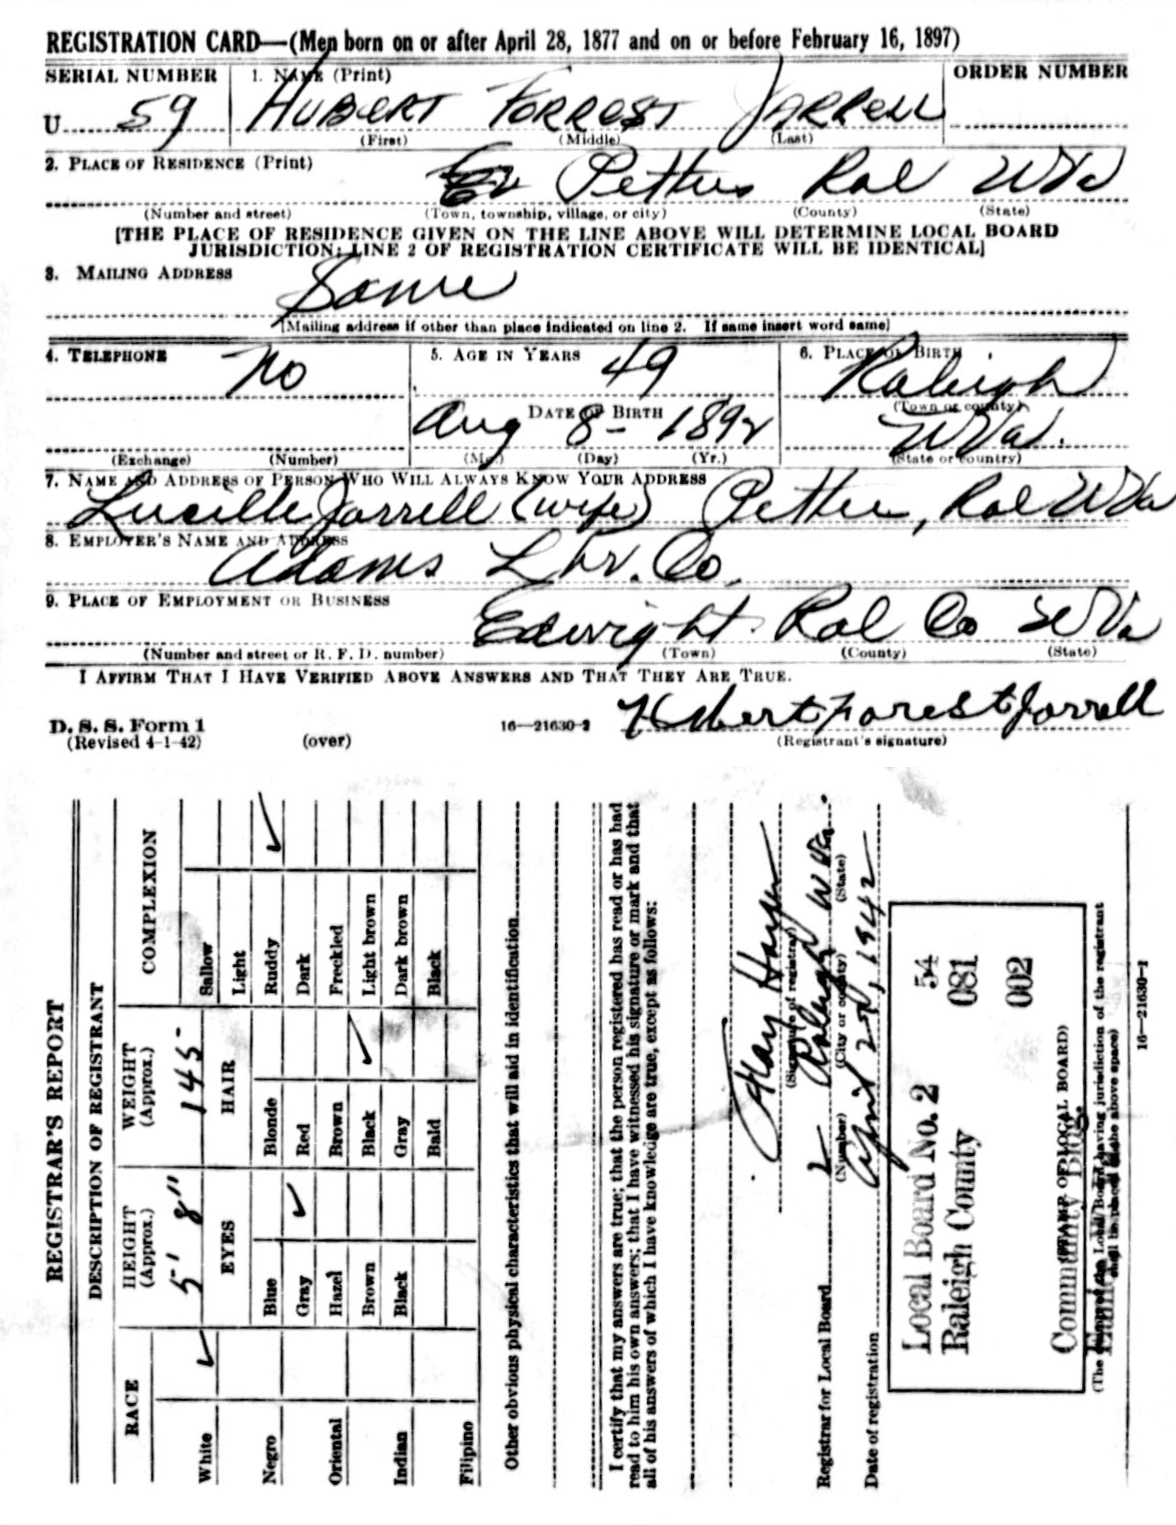 REGISTRATION CARD—(Men born on or after April 28, 1877 and on or before February 16, 1897)
SERIAL NUMBER 1. NAME (Print) ORDER NUMBER
U 59 HUBERT FORREST JARRELL
(First) (Middle) (Last)
2. PLACE OF RESIDENCE (Print)
Pettus Ral W Va
(Number and street) (Town, township, village, or city) (County) (State)
[THE PLACE OF RESIDENCE GIVEN ON THE LINE ABOVE WILL DETERMINE LOCAL BOARD
JURISDICTION; LINE 2 OF REGISTRATION CERTIFICATE WILL BE IDENTICAL]
3. MAILING ADDRESS
Same
[Mailing address if other than place indicated on line 2. If same insert word same]
4. TELEPHONE 5. AGE IN YEARS 6. PLACE OF BIRTH
No 49 Raleigh
(Town or county)
DATE OF BIRTH
Aug 8- 1892 W Va.
(Exchange) (Number) (Mo.) (Day) (Yr.) (State or country)
7. NAME AND ADDRESS OF PERSON WHO WILL ALWAYS KNOW YOUR ADDRESS
Lucille Jarrell (wife) Pettus, Ral W Va
8. EMPLOYER'S NAME AND ADDRESS
Adams Lbr. Co.
9. PLACE OF EMPLOYMENT OR BUSINESS
Edwight Ral Co W Va
(Number and street or R. F. D. number) (Town) (County) (State)
I AFFIRM THAT I HAVE VERIFIED ABOVE ANSWERS AND THAT THEY ARE TRUE.
Hubert Forest Jarrell
D. S. S. Form 1 16—21630-2
(Revised 4-1-42) (over) (Registrant's signature)
REGISTRAR'S REPORT
DESCRIPTION OF REGISTRANT
RACE HEIGHT (Approx.) WEIGHT (Approx.) COMPLEXION
5' 8" 145
White ✓ Sallow
EYES HAIR Light
Negro Blue Blonde Ruddy ✓
Gray ✓ Red Dark
Oriental Hazel Brown Freckled
Brown Black ✓ Light brown
Indian Black Gray Dark brown
Bald Black
Filipino
Other obvious physical characteristics that will aid in identification
I certify that my answers are true; that the person registered has read or has had
read to him his own answers; that I have witnessed his signature or mark and that
all of his answers of which I have knowledge are true, except as follows:
(Signature of registrar)
Registrar for Local Board 2 Raleigh W Va.
(Number) (City or county) (State)
Date of registration April 27, 1942
Local Board No. 2 54
Raleigh County 081
002
Community Bldg.
(STAMP OF LOCAL BOARD)
(The stamp of the Local Board having jurisdiction of the registrant
shall be placed in the above space)
16—21630-2